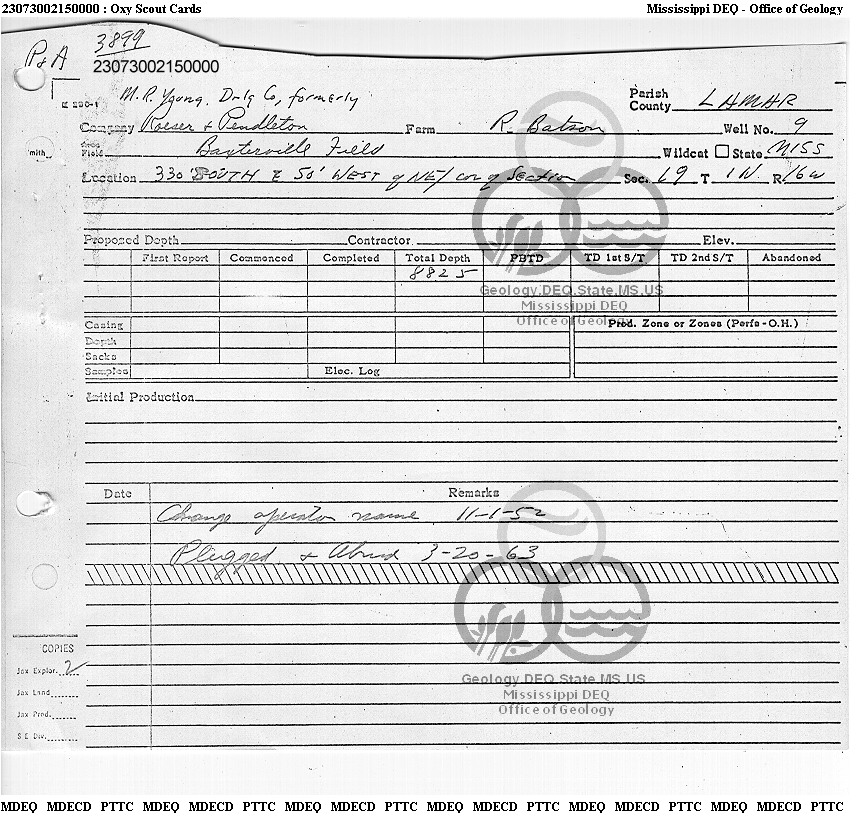 23073002150000 : Oxy Scout Cards Mississippi DEQ - Office of Geology
3899
P & A
23073002150000
M.P. Young Drlg Co, formerly
Parish
County LAMAR
Company Roeser & Pendleton Farm R. Batson Well No. 9
Field Baxterville Field Wildcat State MISS
Location 330' SOUTH & 50' WEST of NE/cor of Section Sec. 19 T 1N R 16W
Proposed Depth Contractor Elev.
First Report Commenced Completed Total Depth PBTD TD 1st S/T TD 2nd S/T Abandoned
8825
Geology.DEQ.State.MS.US
Mississippi DEQ
Office of Geology
Casing Prod. Zone or Zones (Perfs - O.H.)
Depth
Sacks
Samples Elec. Log
Initial Production
Date Remarks
Change operator name 11-1-52
Plugged & Abnd 3-20-63
COPIES
Jax Explor. 2
Jax Land
Jax Prod.
S E Div.
Geology.DEQ.State.MS.US
Mississippi DEQ
Office of Geology
MDEQ MDECD PTTC MDEQ MDECD PTTC MDEQ MDECD PTTC MDEQ MDECD PTTC MDEQ MDECD PTTC MDEQ MDECD PTTC